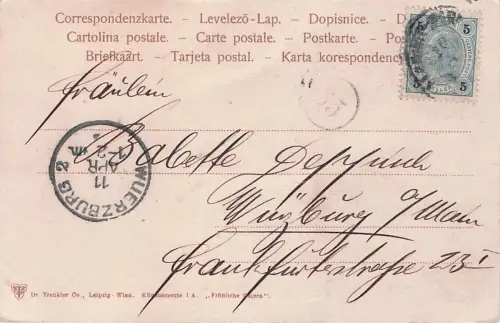 Correspondenzkarte. - Levelezö-Lap. - Dopisnice. - D
Cartolina postale. - Carte postale. - Postkarte. - Pos
Briefkaart. - Tarjeta postal. - Karta korespondenc
5 5
Fräulein
13
Babette
Würzburg a/Main
Frankfurterstraße 23 I
WUERZBURG 2
11
APR
1-2
Dr. Trenkler Co., Leipzig - Wien. Künstlerserie 1 A. „Fröhliche Ostern“.